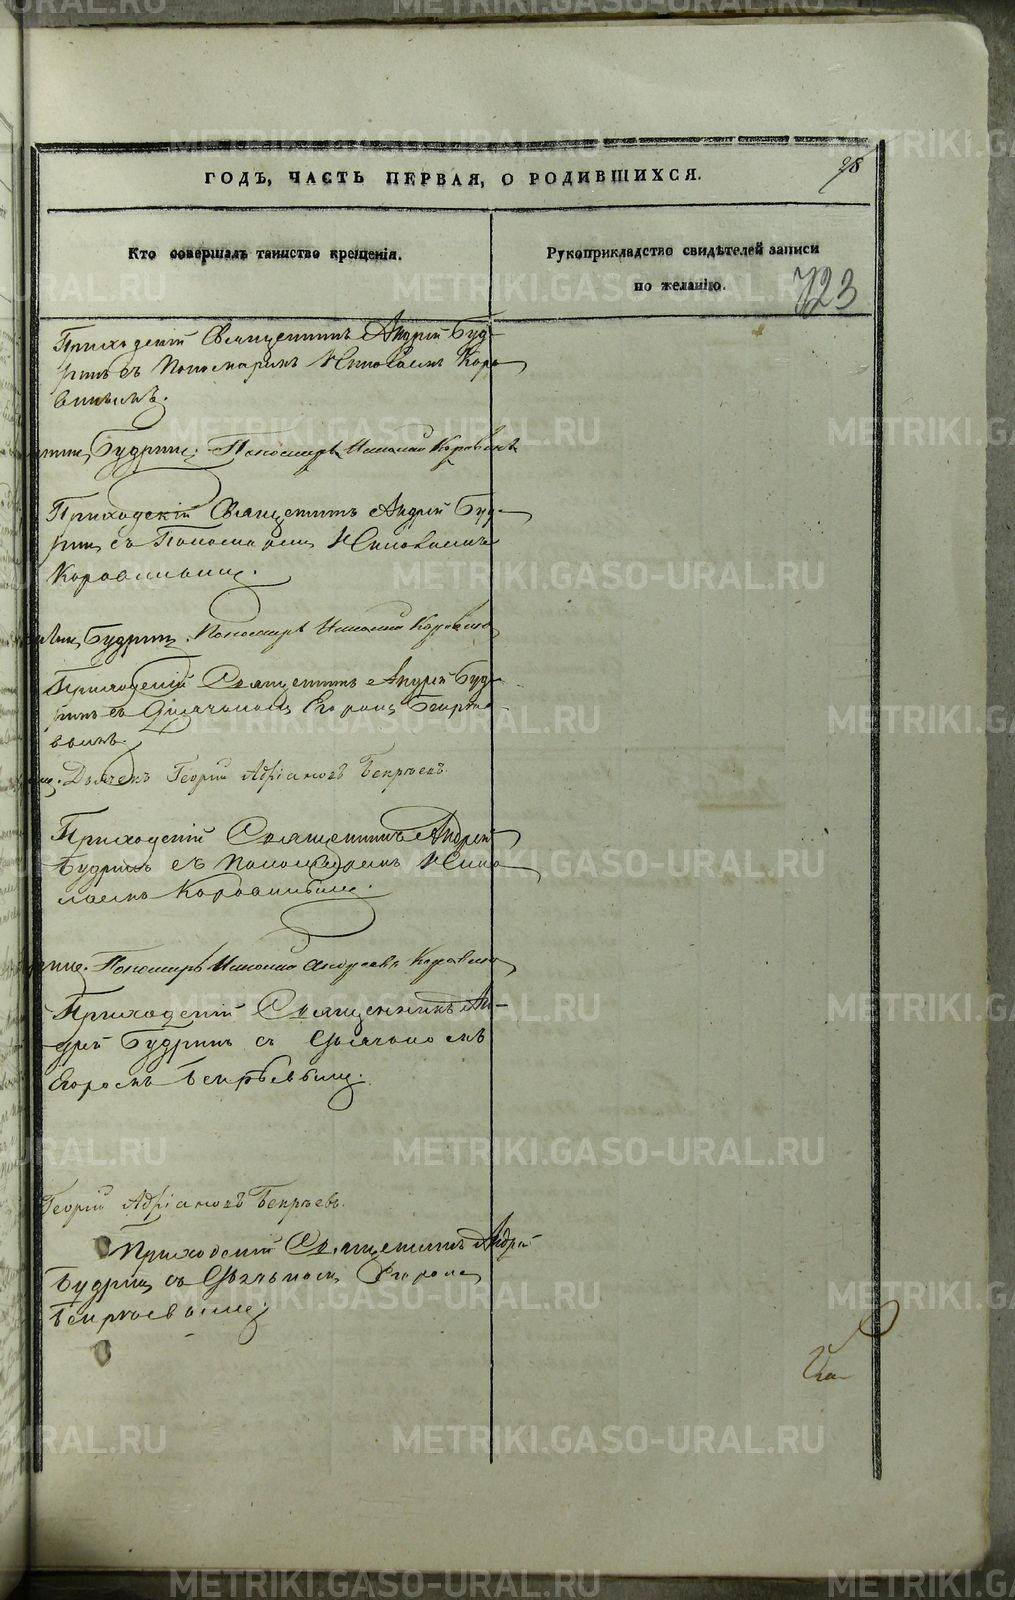 ГОДЪ, ЧАСТЬ ПЕРВАЯ, О РОДИВШИХСЯ.
98
Кто совершалъ таинство крещенія.
Рукоприкладство свидѣтелей записи
по желанію.
723
Приходскій Священникъ Андрей Буд-
ринъ съ Пономаремъ Николаемъ Коро-
винымъ.
Будринъ. Пономарь Николай Коровинъ
Приходскій Священникъ Андрей Буд-
ринъ съ Пономаремъ Николаемъ
Коровинымъ.
Будринъ. Пономарь Николай Коровинъ
Приходскій Священникъ Андрей Буд-
ринъ съ Дьячкомъ Егоромъ Бекрѣе-
вымъ.
Дьячекъ Георгій Адріановъ Бекрѣевъ.
Приходскій Священникъ Андрей
Будринъ съ Пономаремъ Нико-
лаемъ Коровинымъ.
Пономарь Николай Андреевъ Коровинъ
Приходскій Священникъ Ан-
дрей Будринъ съ Дьячкомъ
Егоромъ Бекрѣевымъ.
Георгій Адріановъ Бекрѣевъ.
Приходскій Священникъ Андрей
Будринъ съ Дьячкомъ Егоромъ
Бекрѣевымъ.
METRIKI.GASO-URAL.RU